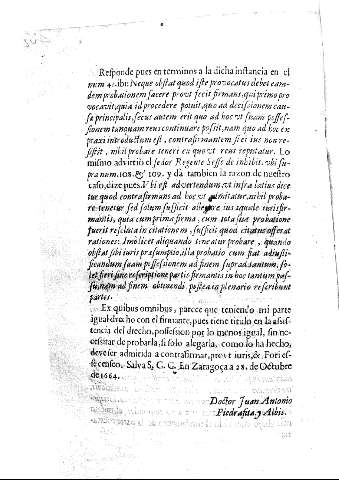 Responde pues en terminos a la dicha instancia en el
num 4. ibi: Neque obstat quod iste provocatus debet eam-
dem probationem facere prout fecit firmans, qui primo pro
vocavit, quia id procedere potuit, quo ad decissionem cau-
sæ principalis, secus autem erit quo ad hoc ut suam posses-
sionem tanquam reus continuare possit, nam quo ad hoc ex
praxi introductum est, contrafirmantem si et ius non re-
sistit, nihil probare teneri eo quod reus reputatur. Lo
mismo advirtiò el señor Regente Sesse de inhibit. ubi su-
pra num. 108. & 109. y da tambien la razon de nuestro
caso, dize pues. Vbi est advertendum ut infra latius dice
tur quod contrafirmans ad hoc ut admitatur, nihil proba-
re tenetur sed solum sufficit alegare ius æquale iuri sfir-
mantis, quia cum prima firma, cum tota sua probatione
fuerit resoluta in citationem, sufficit quod citatus offerat
rationes: Imo licet aliquando teneatur probare, quando
obstat sibi iuris præsumptio, illa probatio cum fiat ad iusti-
ficandum suam possessionem ad finem supradictum, so-
let fieri sine rescriptione partis firmantis in hoc tantum pas-
su, nam ad finem obtinendi, postea in plenario rescribunt
partes.
Ex quibus omnibus, parece que teniendo mi parte
igual drecho con el firmante, pues tiene titulo en la asis-
tencia del drecho, possession por lo menos igual, sin ne-
cessitar de probarla, si solo alegarla, como lo ha hecho,
deve ser admitida a contrafirmar, prout iuris, &. Fori es-
se censeo. Salva S. C. G. En Zaragoça a 28. de Octubre
de 1664.
Doctor Juan Antonio
Piedrafita, y Albis.